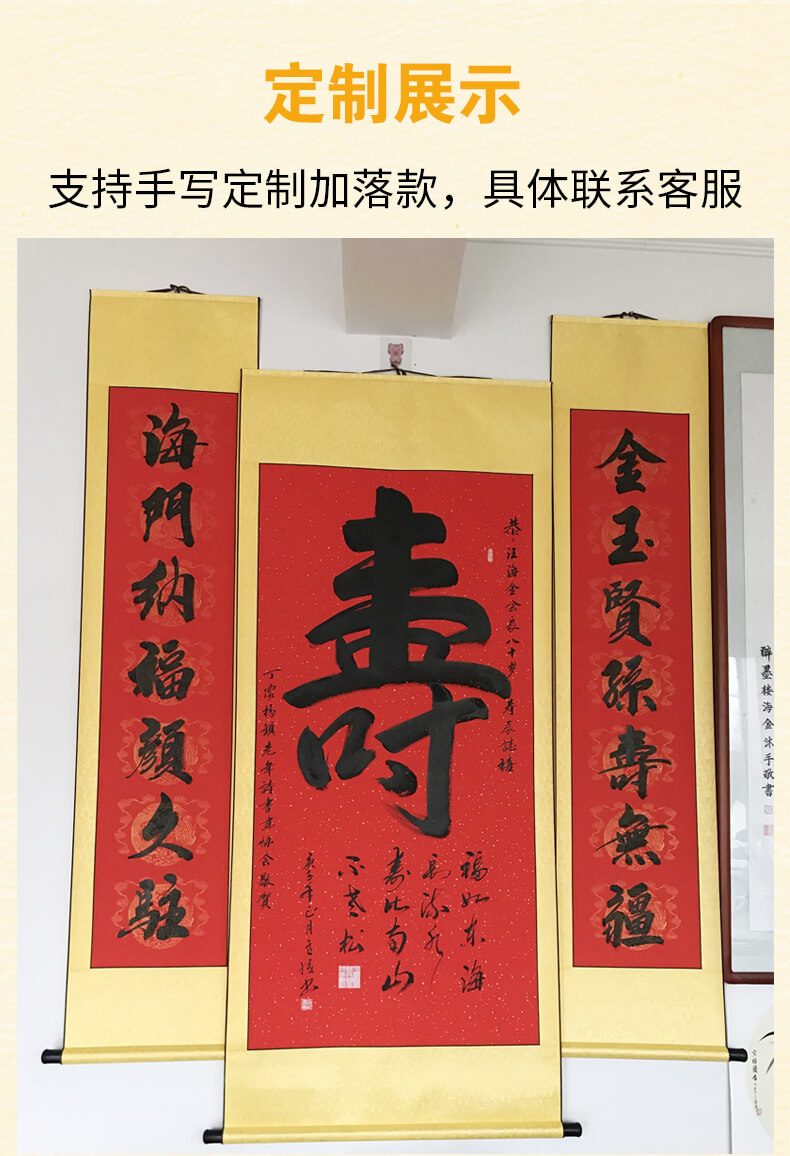 定制展示
支持手写定制加落款，具体联系客服
金玉賢孫壽無疆
海門納福顏久駐
壽
恭汪海金会長八十岁寿辰誌禧
福如东海
长流水
寿比南山
不老松
庚子年正月
丁家楊鎮老年詩書画协会敬賀
醉墨楼海金沐手敬書